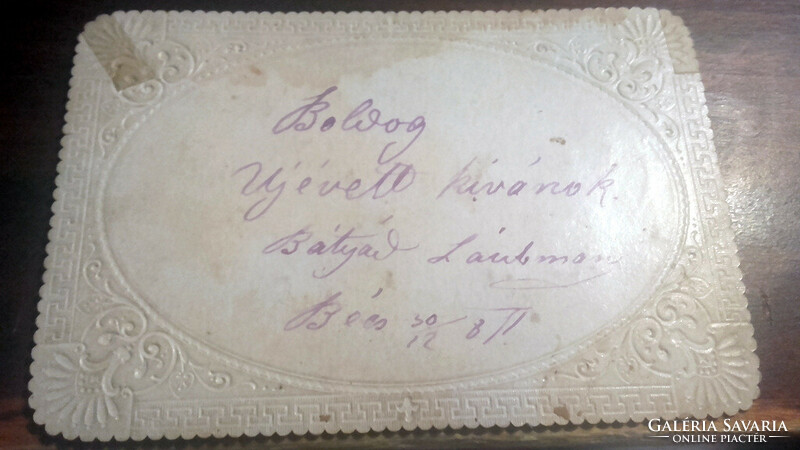 Boldog
Ujévett kivánok.
Bátyád Laubman
Bécs 30/12 8
GALÉRIA SAVARIA
ONLINE PIACTÉR